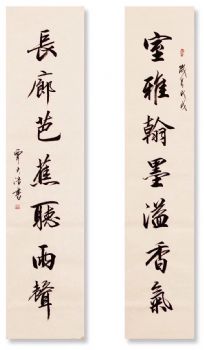 室雅翰墨溢香氣
歲在戊戌
長廊芭蕉聽雨聲